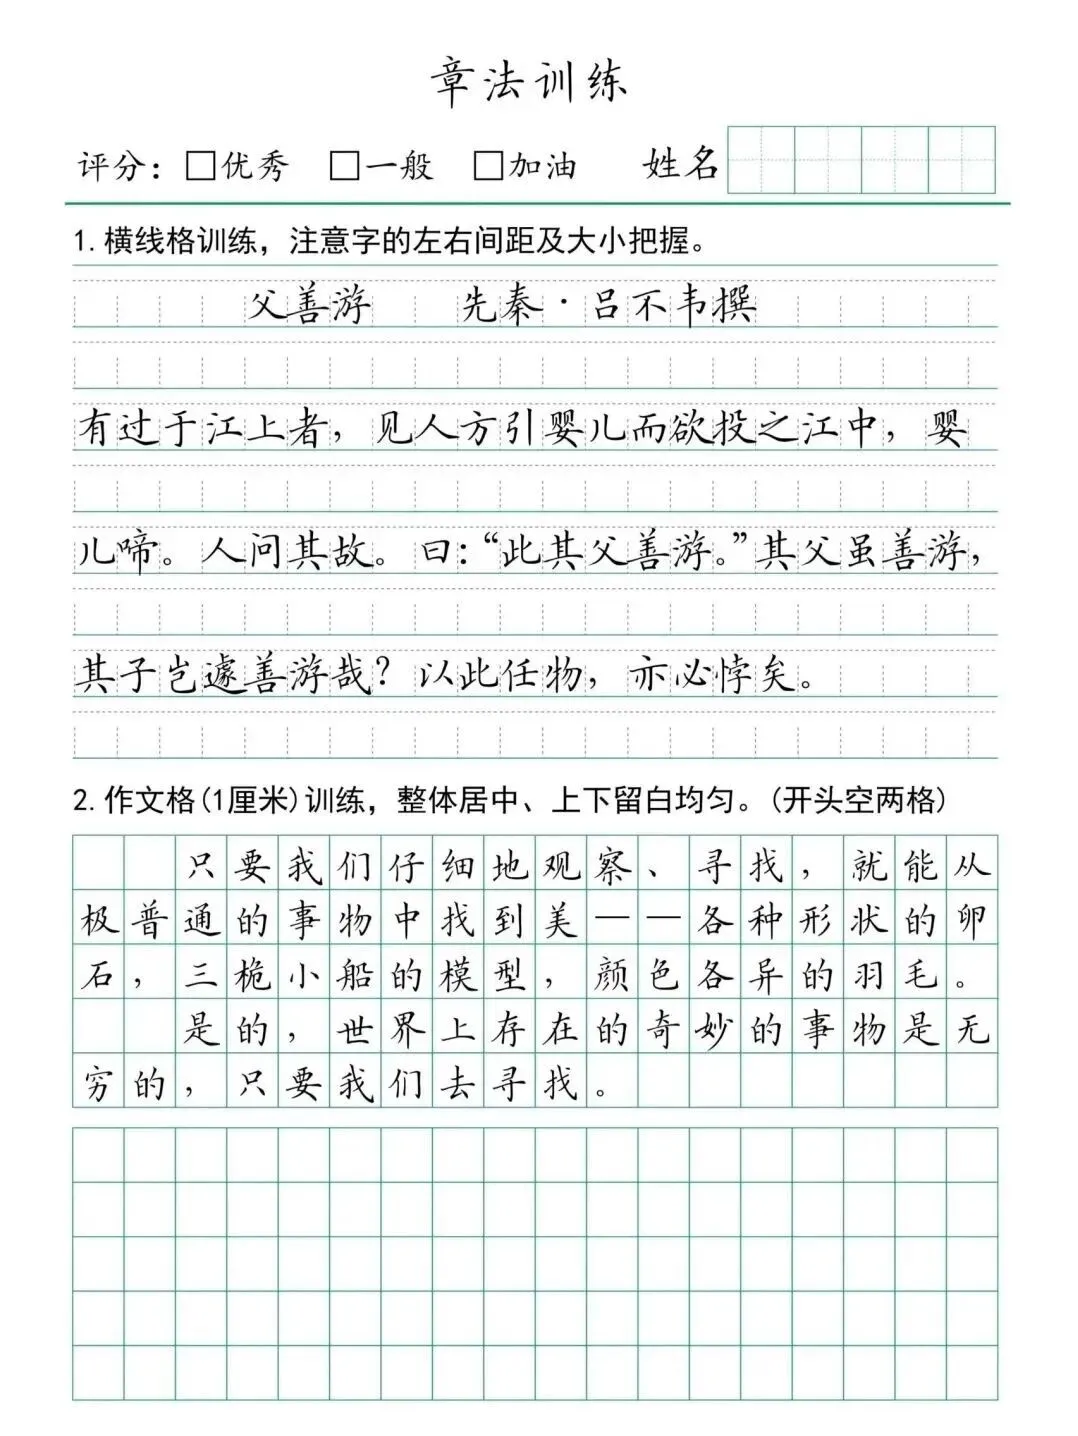 章法训练
评分：□优秀 □一般 □加油 姓名
1.横线格训练，注意字的左右间距及大小把握。
父善游 先秦·吕不韦撰
有过于江上者，见人方引婴儿而欲投之江中，婴
儿啼。人问其故。曰：“此其父善游。”其父虽善游，
其子岂遽善游哉？以此任物，亦必悖矣。
2.作文格(1厘米)训练，整体居中、上下留白均匀。(开头空两格)
只要我们仔细地观察、寻找，就能从
极普通的事物中找到美——各种形状的卵
石，三桅小船的模型，颜色各异的羽毛。
是的，世界上存在的奇妙的事物是无
穷的，只要我们去寻找。